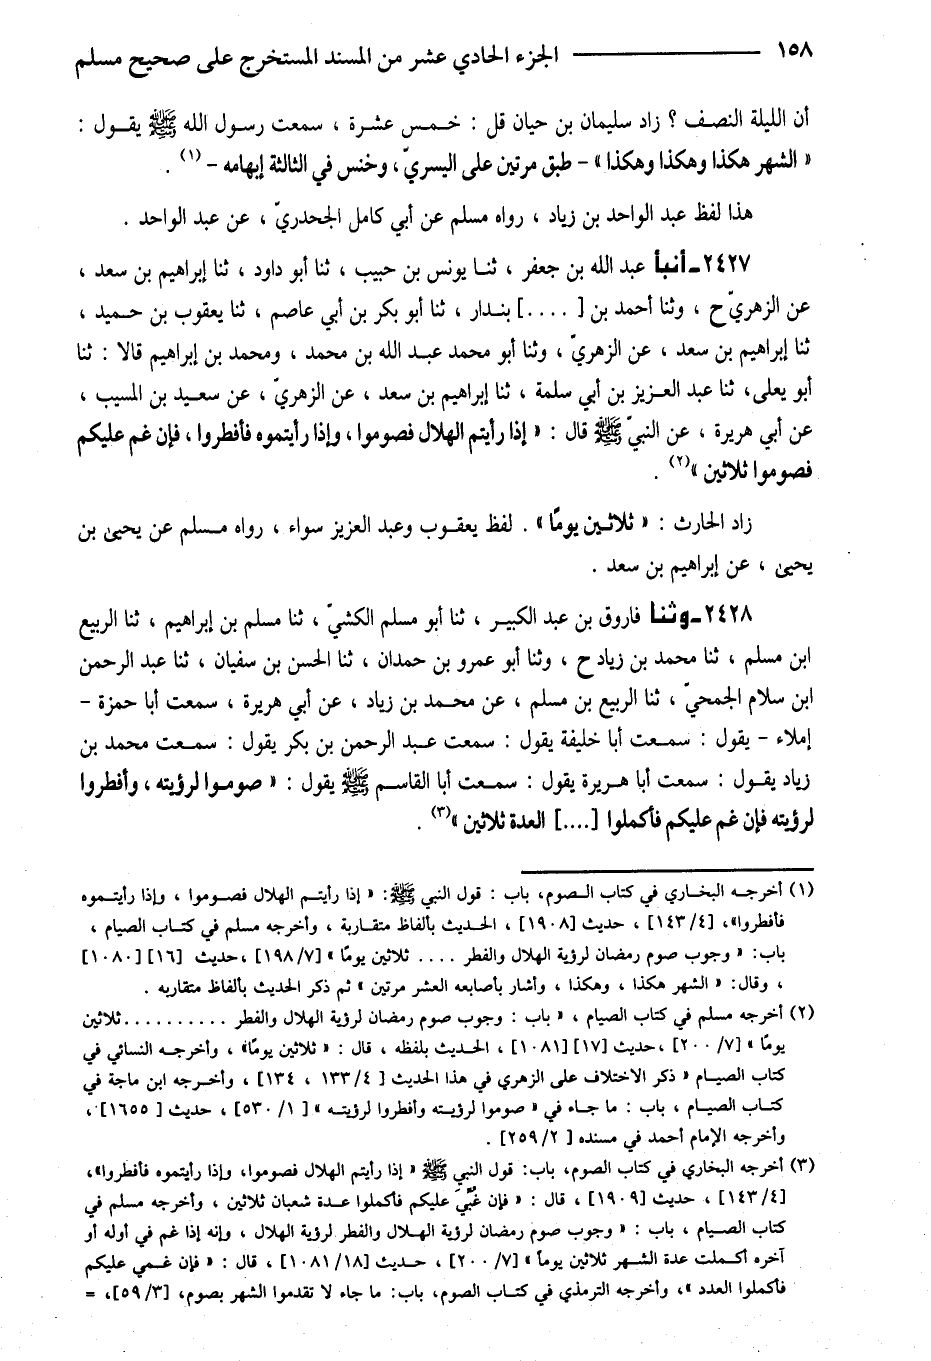 ١٥٨ ــــــــــ الجزء الحادي عشر من المسند المستخرج على صحيح مسلم
أن الليلة النصف ؟ زاد سليمان بن حيان قل : خمس عشرة ، سمعت رسول الله ﷺ يقول :
« الشهر هكذا وهكذا وهكذا » - طبق مرتين على اليسريّ ، وخنس في الثالثة إبهامه - (١) .
هذا لفظ عبد الواحد بن زياد ، رواه مسلم عن أبي كامل الجحدريّ ، عن عبد الواحد .
٢٤٢٧ـ أنبأ عبد الله بن جعفر ، ثنا يونس بن حبيب ، ثنا أبو داود ، ثنا إبراهيم بن سعد ،
عن الزهريّ ح ، وثنا أحمد بن [ .... ] بندار ، ثنا أبو بكر بن أبي عاصم ، ثنا يعقوب بن حميد ،
ثنا إبراهيم بن سعد ، عن الزهريّ ، وثنا أبو محمد عبد الله بن محمد ، ومحمد بن إبراهيم قالا : ثنا
أبو يعلى، ثنا عبد العزيز بن أبي سلمة ، ثنا إبراهيم بن سعد ، عن الزهريّ ، عن سعيد بن المسيب ،
عن أبي هريرة ، عن النبيّ ﷺ قال : « إذا رأيتم الهلال فصوموا ، وإذا رأيتموه فأفطروا ، فإن غم عليكم
فصوموا ثلاثين »(٢) .
زاد الحارث : « ثلاثين يومًا » . لفظ يعقوب وعبد العزيز سواء ، رواه مسلم عن يحيى بن
يحيى ، عن إبراهيم بن سعد .
٢٤٢٨ـ وثنا فاروق بن عبد الكبير ، ثنا أبو مسلم الكشيّ ، ثنا مسلم بن إبراهيم ، ثنا الربيع
ابن مسلم ، ثنا محمد بن زياد ح ، وثنا أبو عمرو بن حمدان ، ثنا الحسن بن سفيان ، ثنا عبد الرحمن
ابن سلام الجمحيّ ، ثنا الربيع بن مسلم ، عن محمد بن زياد ، عن أبي هريرة ، سمعت أبا حمزة -
إملاء - يقول : سمعت أبا خليفة يقول : سمعت عبد الرحمن بن بكر يقول : سمعت محمد بن
زياد يقول : سمعت أبا هريرة يقول : سمعت أبا القاسم ﷺ يقول : « صوموا لرؤيته ، وأفطروا
لرؤيته فإن غم عليكم فأكملوا [....] العدة ثلاثين »(٣) .
(١) أخرجه البخاري في كتاب الصوم، باب : قول النبي ﷺ: « إذا رأيتم الهلال فصوموا ، وإذا رأيتموه
فأفطروا»، [١٤٣/٤] ، حديث [١٩٠٨] ، الحديث بألفاظ متقاربة ، وأخرجه مسلم في كتاب الصيام ،
باب: « وجوب صوم رمضان لرؤية الهلال والفطر .... ثلاثين يومًا » [١٩٨/٧] ،حديث [١٦] [١٠٨٠]
، وقال: « الشهر هكذا ، وهكذا ، وأشار بأصابعه العشر مرتين » ثم ذكر الحديث بألفاظ متقاربه .
(٢) أخرجه مسلم في كتاب الصيام ، « باب : وجوب صوم رمضان لرؤية الهلال والفطر ..........ثلاثين
يومًا » [٢٠٠/٧] ،حديث [١٧] [١٠٨١] ، الحديث بلفظه ، قال : « ثلاثين يومًا» ، وأخرجه النسائي في
كتاب الصيام « ذكر الاختلاف على الزهري في هذا الحديث [ ١٣٣/٤ ، ١٣٤] ، وأخرجه ابن ماجة في
كتاب الصيام ، باب : ما جاء في « صوموا لرؤيته وأفطروا لرؤيته » [ ٥٣٠/١] ، حديث [ ١٦٥٥] ،
وأخرجه الإمام أحمد في مسنده [ ٢٥٩/٢] .
(٣) أخرجه البخاري في كتاب الصوم، باب: قول النبي ﷺ « إذا رأيتم الهلال فصوموا، وإذا رأيتموه فأفطروا»،
[١٤٣/٤] ، حديث [١٩٠٩] ، قال : « فإن غُبِّيَ عليكم فأكملوا عدة شعبان ثلاثين ، وأخرجه مسلم في
كتاب الصيام ، باب : « وجوب صوم رمضان لرؤية الهلال والفطر لرؤية الهلال ، وإنه إذا غم في أوله أو
آخره أكملت عدة الشهر ثلاثين يوماً » [٢٠٠/٧] ، حديث [١٠٨١/١٨] ، قال : « فإن غمي عليكم
فأكملوا العدد »، وأخرجه الترمذي في كتاب الصوم، باب: ما جاء لا تقدموا الشهر بصوم، [٥٩/٣]، =